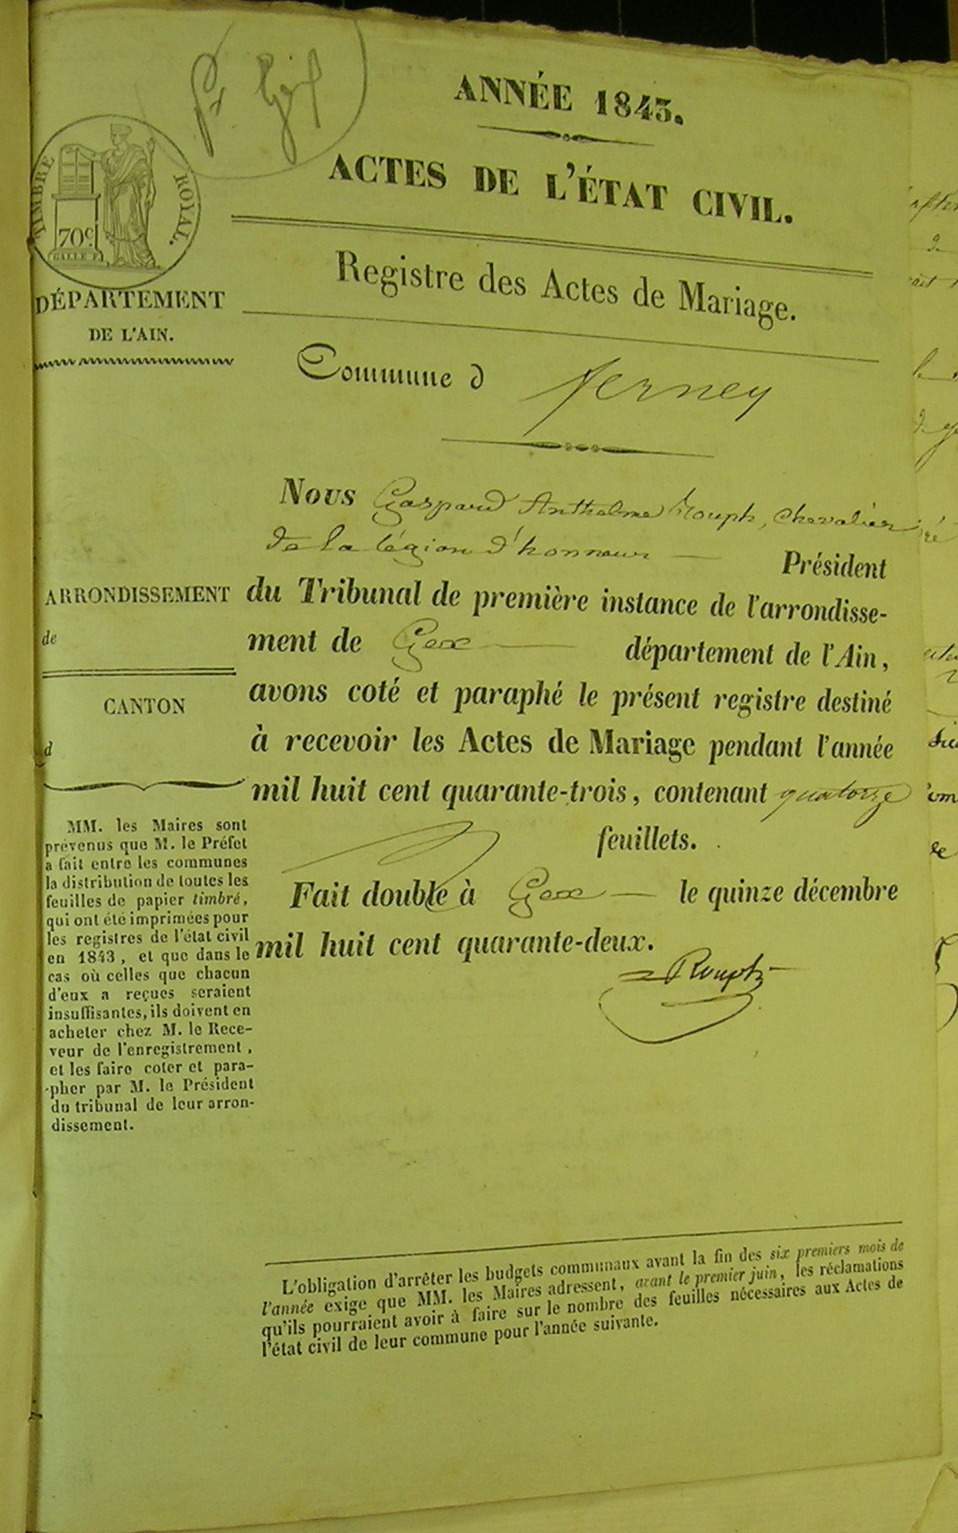 ANNÉE 1843.
ACTES DE L'ÉTAT CIVIL.
TIMBRE ROYAL.
70c
DÉPARTEMENT
DE L'AIN.
Registre des Actes de Mariage.
Commune d ferney
Nous Gaspard Anthelme Rouph, chevalier
de la légion d'honneur Président
ARRONDISSEMENT
de
CANTON
d
du Tribunal de première instance de l'arrondisse-
ment de Gex département de l'Ain,
avons coté et paraphé le présent registre destiné
à recevoir les Actes de Mariage pendant l'année
mil huit cent quarante-trois, contenant quatorze
feuillets.
Fait double à Gex le quinze décembre
mil huit cent quarante-deux.
Rouph
MM. les Maires sont
prévenus que M. le Préfet
a fait entre les communes
la distribution de toutes les
feuilles de papier timbré,
qui ont été imprimées pour
les registres de l'état civil
en 1843, et que dans le
cas où celles que chacun
d'eux a reçues seraient
insuffisantes, ils doivent en
acheter chez M. le Rece-
veur de l'enregistrement,
et les faire coter et para-
pher par M. le Président
du tribunal de leur arron-
dissement.
L'obligation d'arrêter les budgets communaux avant la fin des six premiers mois de
l'année exige que MM. les Maires adressent, avant le premier juin, les réclamations
qu'ils pourraient avoir à faire sur le nombre des feuilles nécessaires aux Actes de
l'état civil de leur commune pour l'année suivante.